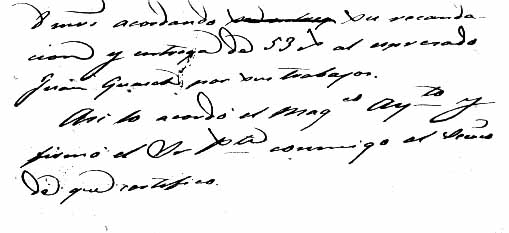 acordando su recauda-
cion y entrega de 53 r.s al espresado
Juan Guasch por sus trabajos.
Asi lo acordó el Mag.co Ay.to y
firmó el Sr Pte conmigo el Secrio
de que certifico.